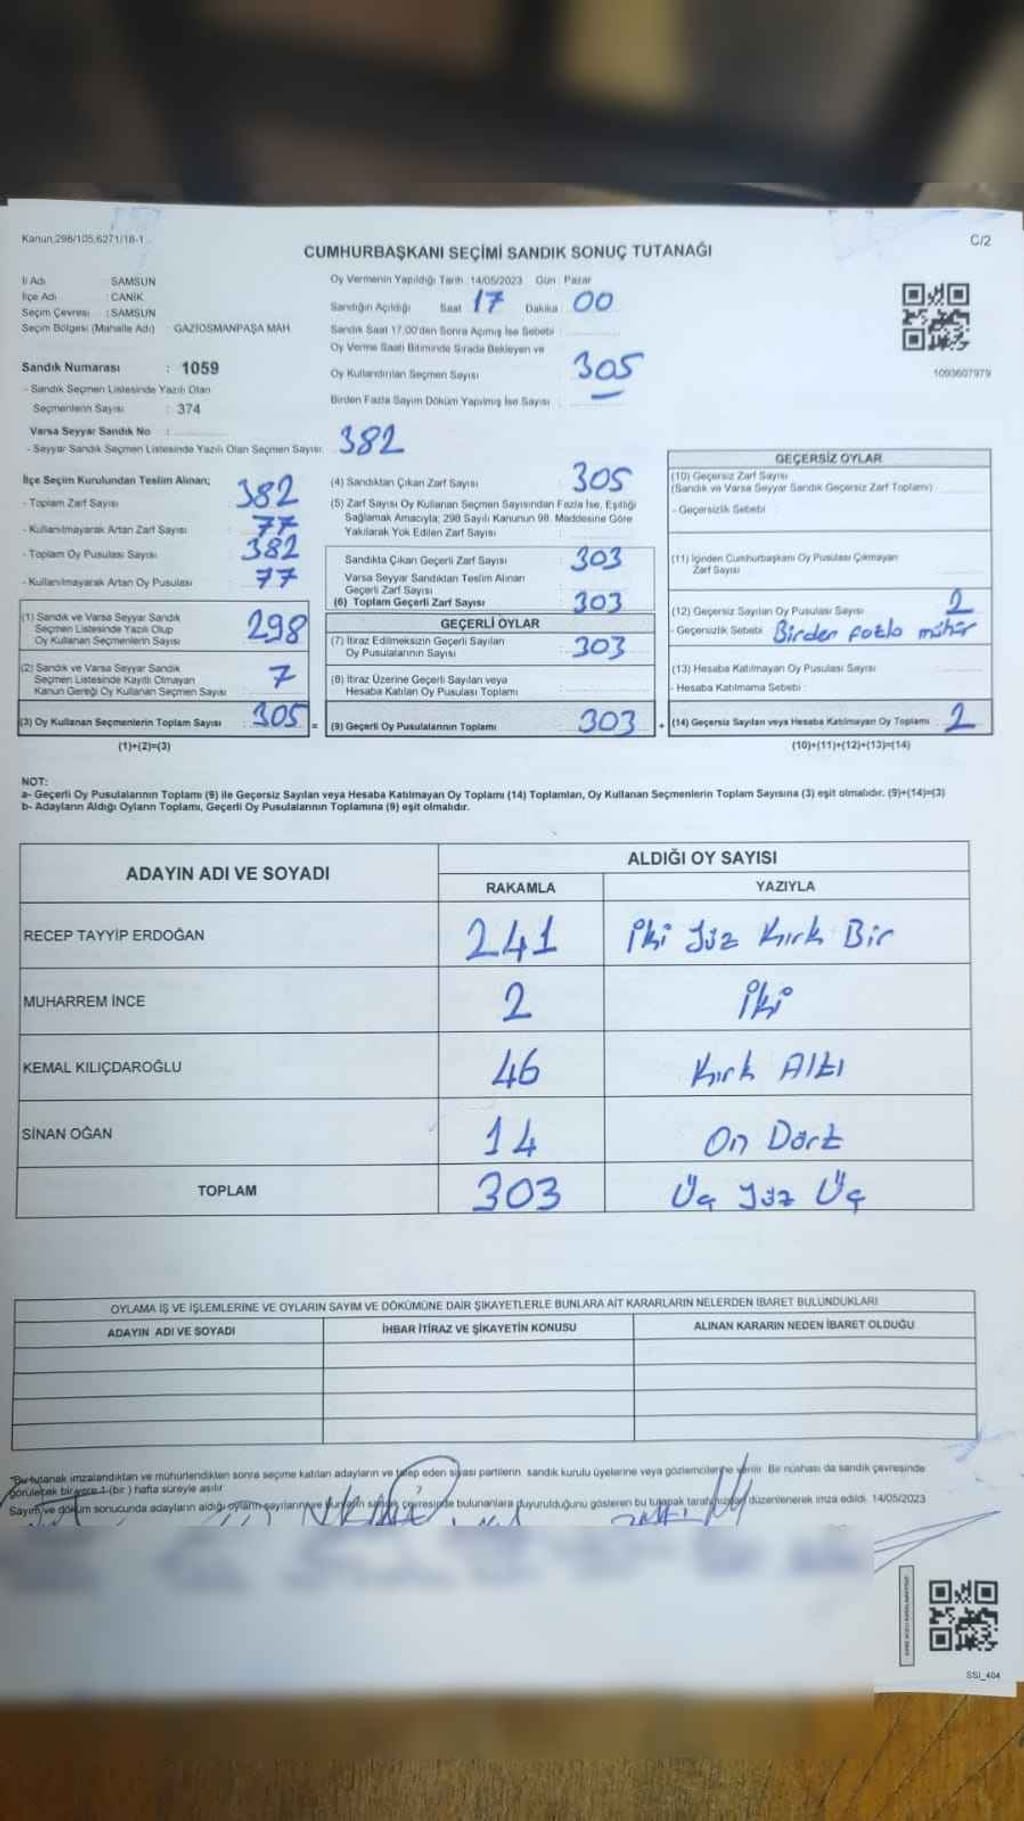 Kanun,298/105,6271/18-1
C/2
CUMHURBAŞKANI SEÇİMİ SANDIK SONUÇ TUTANAĞI
İl Adı SAMSUN
İlçe Adı : CANİK
Seçim Çevresi : SAMSUN
Seçim Bölgesi (Mahalle Adı) GAZİOSMANPAŞA MAH.
Oy Vermenin Yapıldığı Tarih :14/05/2023 Gün : Pazar
Sandığın Açıldığı Saat 17 Dakika : 00
Sandık Saat 17.00'den Sonra Açımış İse Sebebi :
Oy Verme Saati Bitiminde Sırada Bekleyen ve
Oy Kullandırılan Seçmen Sayısı 305
Birden Fazla Sayım Döküm Yapılmış İse Sayısı
1093607979
Sandık Numarası : 1059
- Sandık Seçmen Listesinde Yazılı Olan
Seçmenlerin Sayısı : 374
Varsa Seyyar Sandık No :
- Seyyar Sandık Seçmen Listesinde Yazılı Olan Seçmen Sayısı: 382
İlçe Seçim Kurulundan Teslim Alınan;
- Toplam Zarf Sayısı 382
- Kullanılmayarak Artan Zarf Sayısı 77
- Toplam Oy Pusulası Sayısı 382
- Kullanılmayarak Artan Oy Pusulası 77
(1) Sandık ve Varsa Seyyar Sandık
Seçmen Listesinde Yazılı Olup
Oy Kullanan Seçmenlerin Sayısı 298
(2) Sandık ve Varsa Seyyar Sandık
Seçmen Listesinde Kayıtlı Olmayan
Kanun Gereği Oy Kullanan Seçmen Sayısı 7
(3) Oy Kullanan Seçmenlerin Toplam Sayısı : 305 =
(1)+(2)=(3)
(4) Sandıktan Çıkan Zarf Sayısı 305
(5) Zarf Sayısı Oy Kullanan Seçmen Sayısından Fazla İse, Eşitliği
Sağlamak Amacıyla; 298 Sayılı Kanunun 98. Maddesine Göre
Yakılarak Yok Edilen Zarf Sayısı
Sandıkta Çıkan Geçerli Zarf Sayısı 303
Varsa Seyyar Sandıktan Teslim Alınan
Geçerli Zarf Sayısı
(6) Toplam Geçerli Zarf Sayısı 303
GEÇERLİ OYLAR
(7) İtiraz Edilmeksizin Geçerli Sayılan
Oy Pusulalarının Sayısı 303
(8) İtiraz Üzerine Geçerli Sayılan veya
Hesaba Katılan Oy Pusulası Toplamı
(9) Geçerli Oy Pusulalarının Toplamı 303 +
GEÇERSİZ OYLAR
(10) Geçersiz Zarf Sayısı
(Sandık ve Varsa Seyyar Sandık Geçersiz Zarf Toplamı)
- Geçersizlik Sebebi
(11) İçinden Cumhurbaşkanı Oy Pusulası Çıkmayan
Zarf Sayısı
(12) Geçersiz Sayılan Oy Pusulası Sayısı 2
- Geçersizlik Sebebi Birden fazla mühür
(13) Hesaba Katılmayan Oy Pusulası Sayısı
- Hesaba Katılmama Sebebi
(14) Geçersiz Sayılan veya Hesaba Katılmayan Oy Toplamı 2
(10)+(11)+(12)+(13)=(14)
NOT:
a- Geçerli Oy Pusulalarının Toplamı (9) ile Geçersiz Sayılan veya Hesaba Katılmayan Oy Toplamı (14) Toplamları, Oy Kullanan Seçmenlerin Toplam Sayısına (3) eşit olmalıdır. (9)+(14)=(3)
b- Adayların Aldığı Oyların Toplamı, Geçerli Oy Pusulalarının Toplamına (9) eşit olmalıdır.
ADAYIN ADI VE SOYADI ALDIĞI OY SAYISI
RAKAMLA YAZIYLA
RECEP TAYYİP ERDOĞAN 241 İki Yüz Kırk Bir
MUHARREM İNCE 2 İki
KEMAL KILIÇDAROĞLU 46 Kırk Altı
SİNAN OĞAN 14 On Dört
TOPLAM 303 Üç Yüz Üç
OYLAMA İŞ VE İŞLEMLERİNE VE OYLARIN SAYIM VE DÖKÜMÜNE DAİR ŞİKAYETLERLE BUNLARA AİT KARARLARIN NELERDEN İBARET BULUNDUKLARI
ADAYIN ADI VE SOYADI İHBAR İTİRAZ VE ŞİKAYETİN KONUSU ALINAN KARARIN NEDEN İBARET OLDUĞU
"Bu tutanak imzalandıktan ve mühürlendikten sonra seçime katılan adayların ve talep eden siyasi partilerin sandık kurulu üyelerine veya gözlemcilerine verilir. Bir nüshası da sandık çevresinde
görülecek bir yere 1 (bir) hafta süreyle asılır
Sayım ve döküm sonucunda adayların aldığı oyların sayılarını ve bunların sandık çevresinde bulunanlara duyurulduğunu gösteren bu tutanak tarafımızdan düzenlenerek imza edildi. 14/05/2023
SSI_404